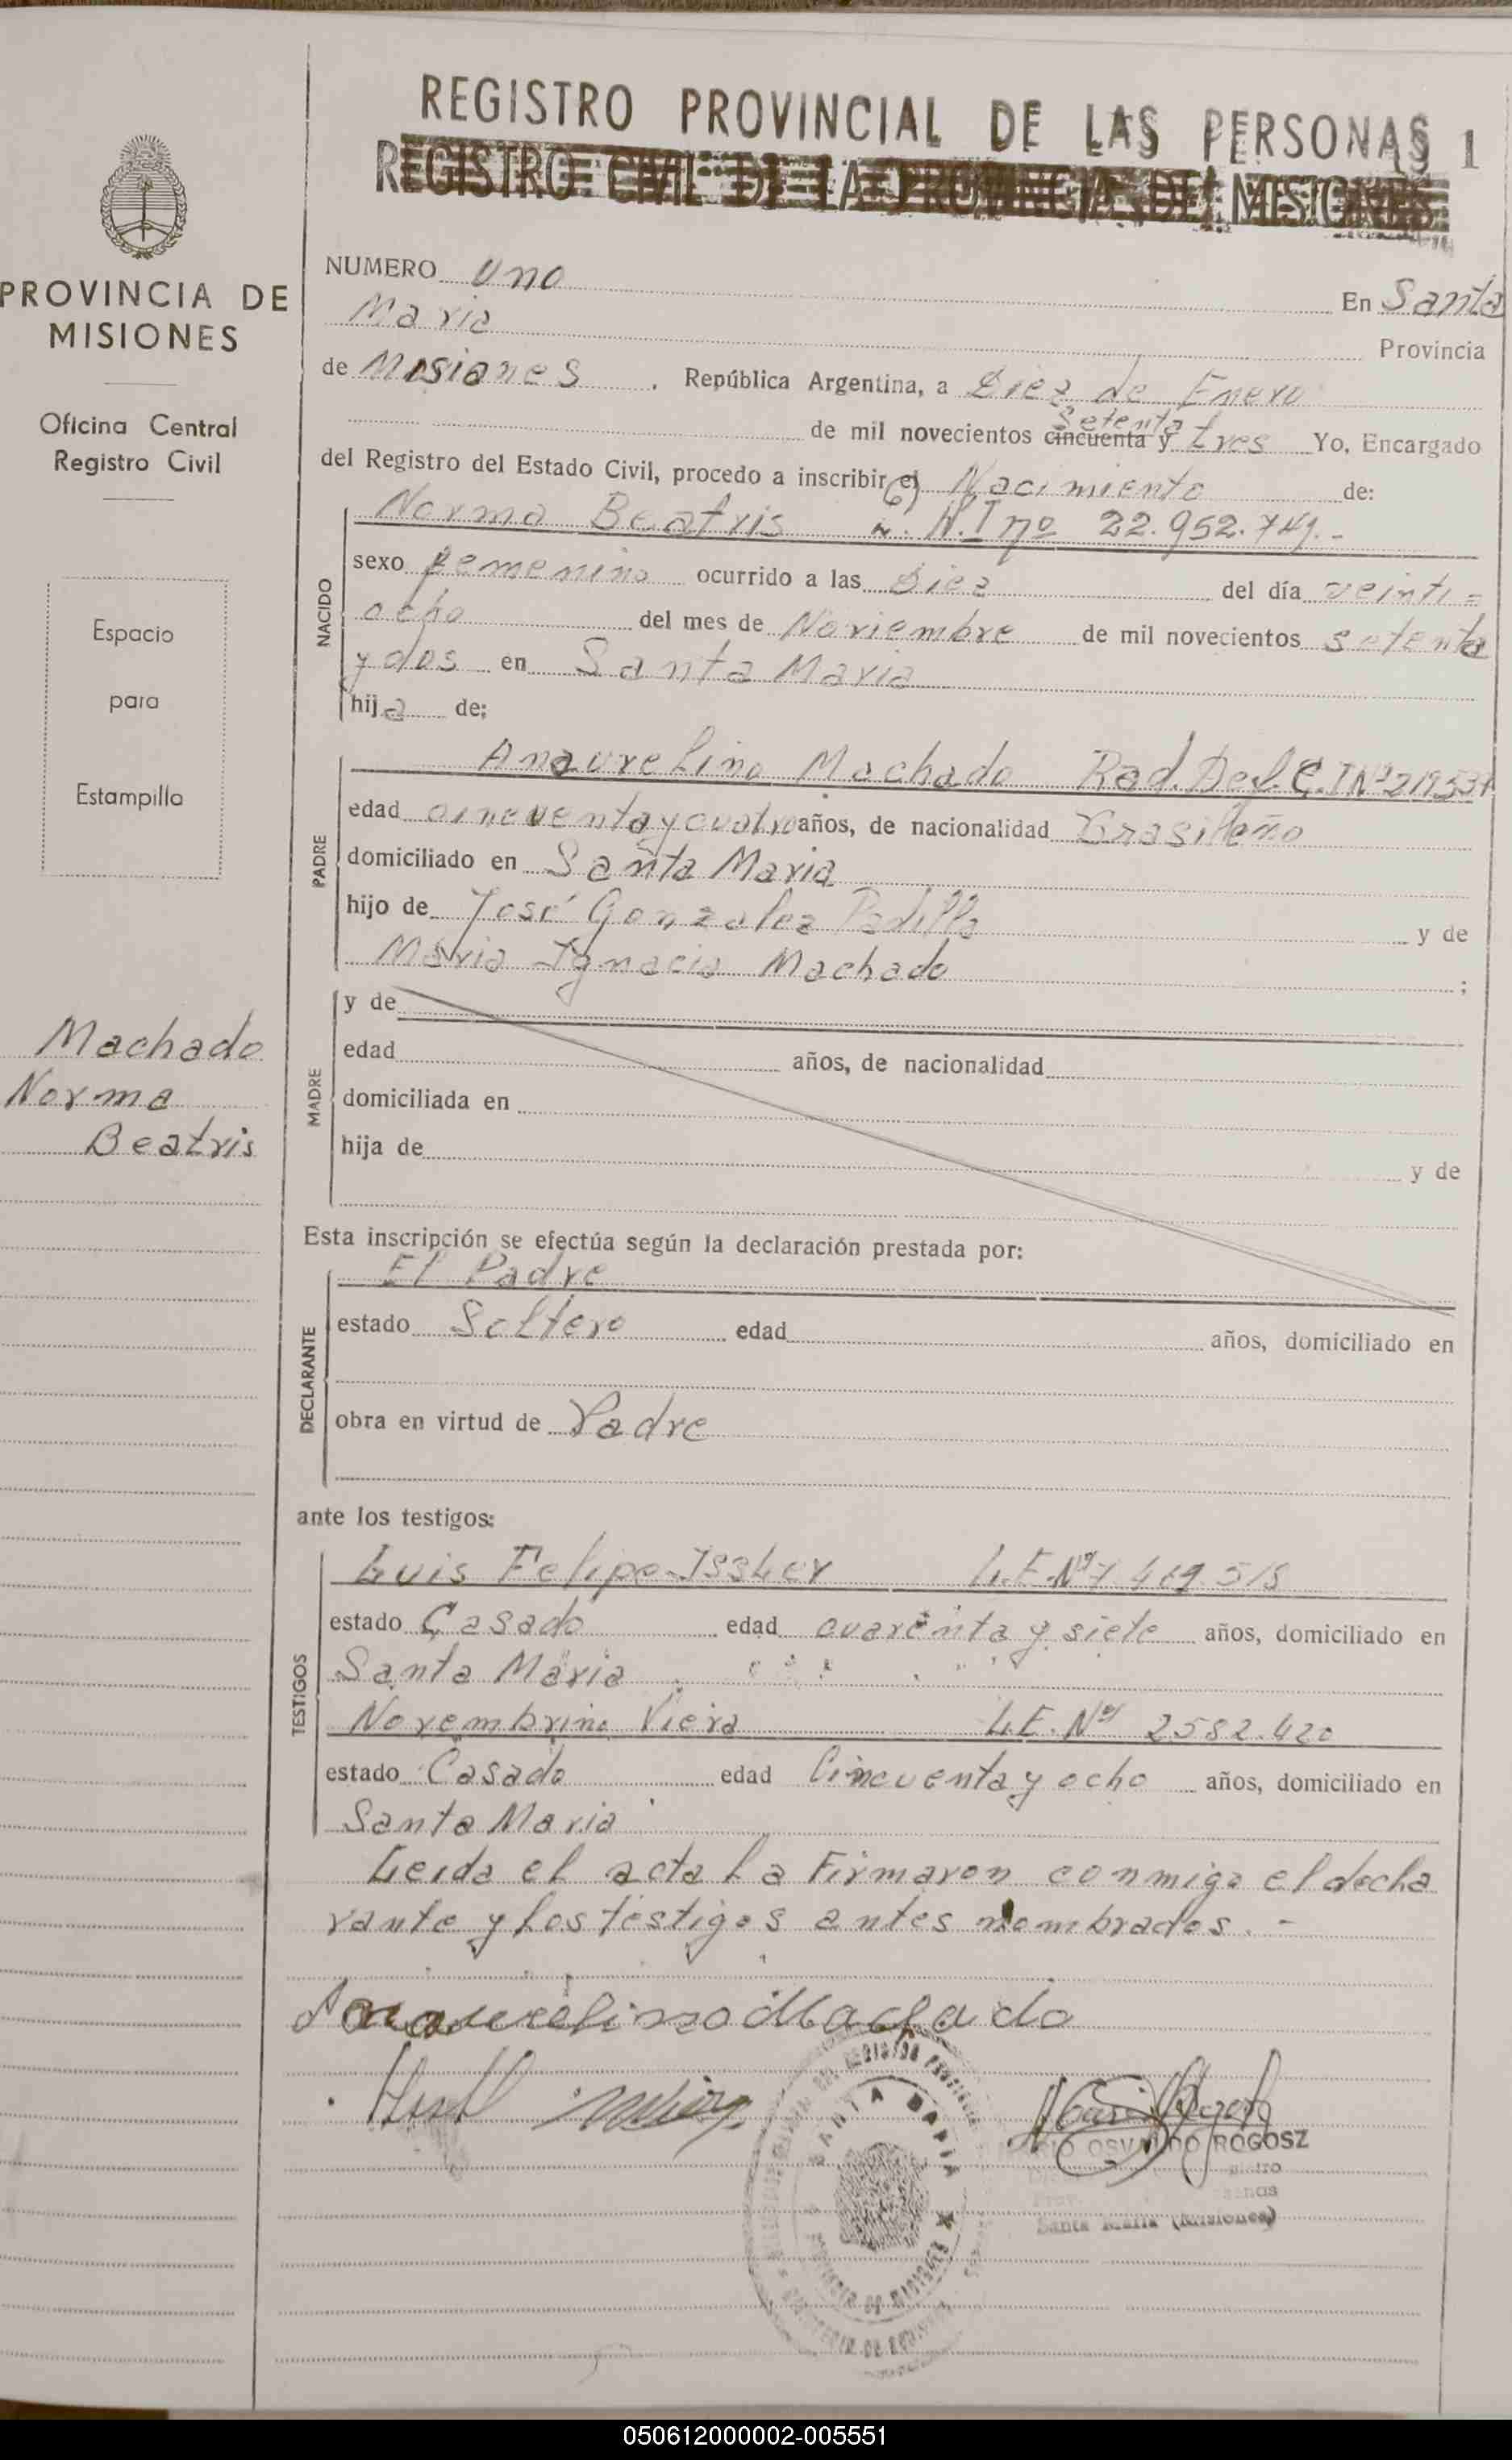 REGISTRO PROVINCIAL DE LAS PERSONAS 1
REGISTRO CIVIL DE LA PROVINCIA DE MISIONES
PROVINCIA DE
MISIONES
Oficina Central
Registro Civil
Espacio
para
Estampilla
Machado
Norma
Beatris
NUMERO Uno En Santa
Maria Provincia
de Misiones . República Argentina, a Diez de Enero
Setenta
de mil novecientos cincuenta y tres Yo, Encargado
del Registro del Estado Civil, procedo a inscribir el Nacimiento de:
Norma Beatris N.I nº 22.952.741.-
NACIDO
sexo Femenino ocurrido a las Diez del día veinti=
ocho del mes de Noviembre de mil novecientos setenta
y dos en Santa Maria
hija de:
Anaurelino Machado Rad. Def. C.I Nº 219537
PADRE
edad cincuenta y cuatro años, de nacionalidad Brasileño
domiciliado en Santa Maria
hijo de José Gonzalez Padilla y de
Maria Ignacia Machado ;
MADRE
y de
edad años, de nacionalidad
domiciliada en
hija de y de
Esta inscripción se efectúa según la declaración prestada por:
El Padre
DECLARANTE
estado Soltero edad años, domiciliado en
obra en virtud de Padre
ante los testigos:
Luis Felipe Issler L.E. Nº 7.419.518
TESTIGOS
estado Casado edad cuarenta y siete años, domiciliado en
Santa Maria
Novembrino Vieira L.E. Nº 2582.420
estado Casado edad Cincuenta y ocho años, domiciliado en
Santa Maria
Leida el acta La Firmaron conmigo el decla
rante y los testigos antes nombrados.-
Anaurelino Machado
SANTA MARIA
OSVALDO ROGOSZ
Santa Maria (Misiones)
050612000002-005551